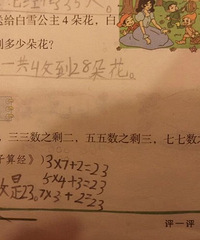 送给白雪公主4朵花,白
到多少朵花?
一共收到28朵花。
,三三数之剩二,五五数之剩三,七七数
子算经》)3×7+2=23
5×4+3=23
是23。7×3+2=23
评一评